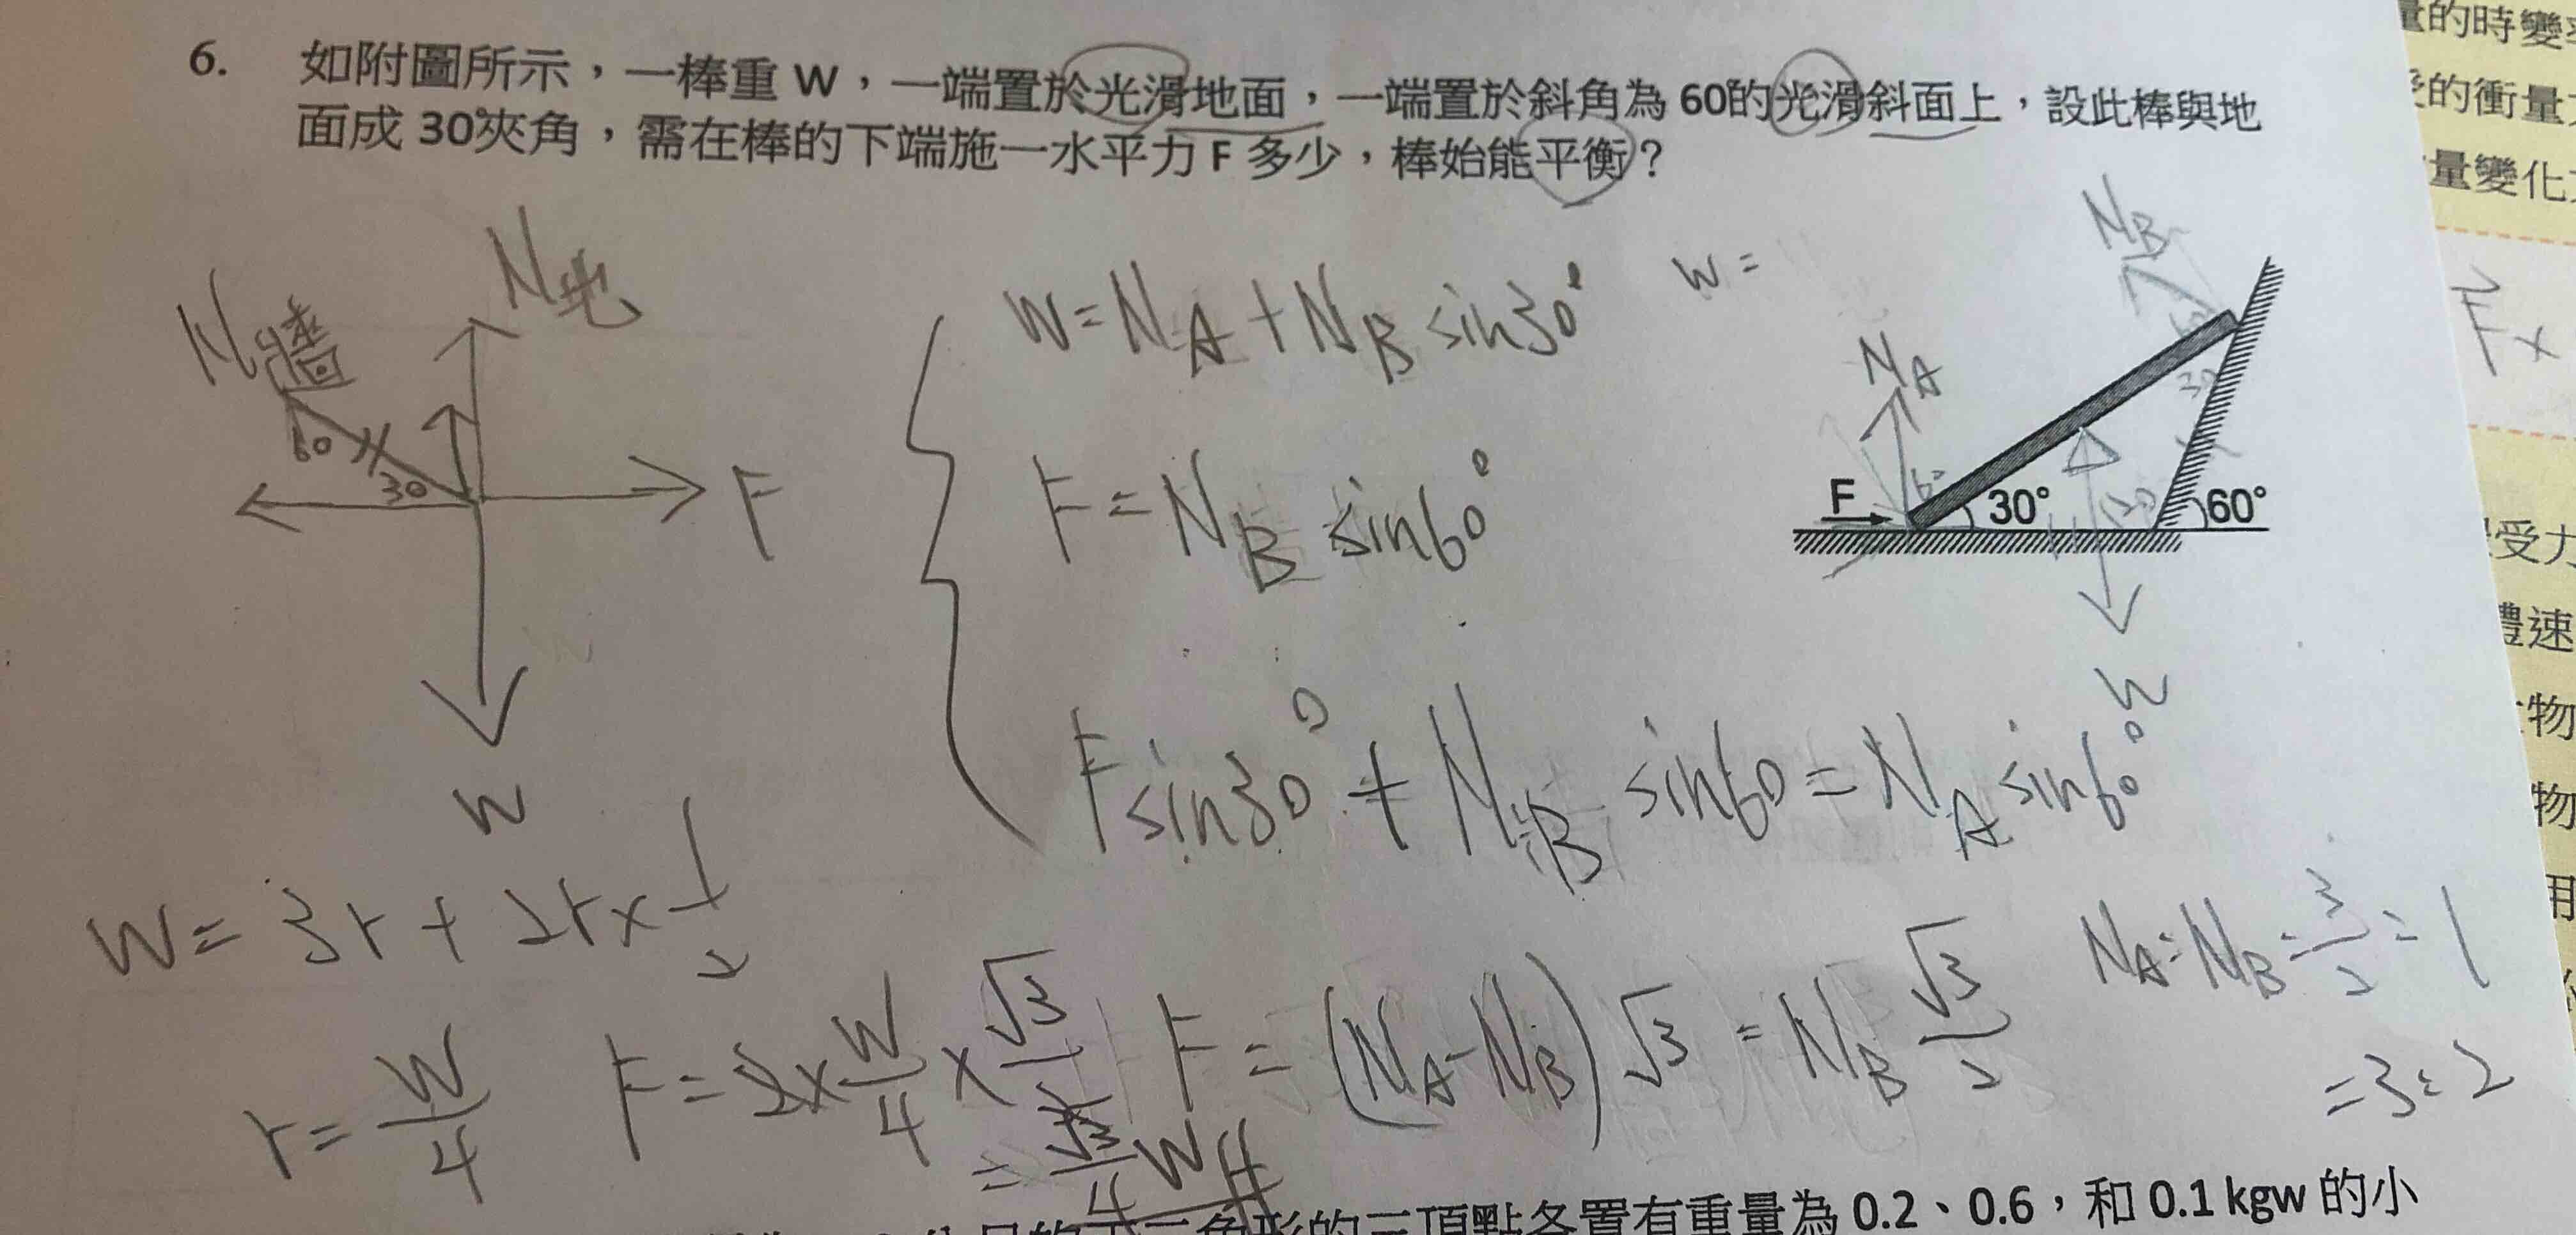 6. 如附圖所示，一棒重 W，一端置於光滑地面，一端置於斜角為 60的光滑斜面上，設此棒與地
面成 30°夾角，需在棒的下端施一水平力 F 多少，棒始能平衡？
N地
N牆
60
30
F
W
W = N_A + N_B sin30°
W =
F = N_B sin60°
F sin30° + N_B sin60 = N_A sin60°
N_B
N_A
F
30°
60°
30
120
W
W = 3r + 2r × 1/2
r = W/4
F = 2 × W/4 × √3/2
= √3/4 W
F = (N_A - N_B) √3 = N_B √3/2
N_A : N_B = 3/2 : 1
= 3 : 2
角形的三頂點各置有重量為 0.2、0.6，和 0.1 kgw 的小
量的時變
的衝量
量變化
F x
受力
體速
物
物
用